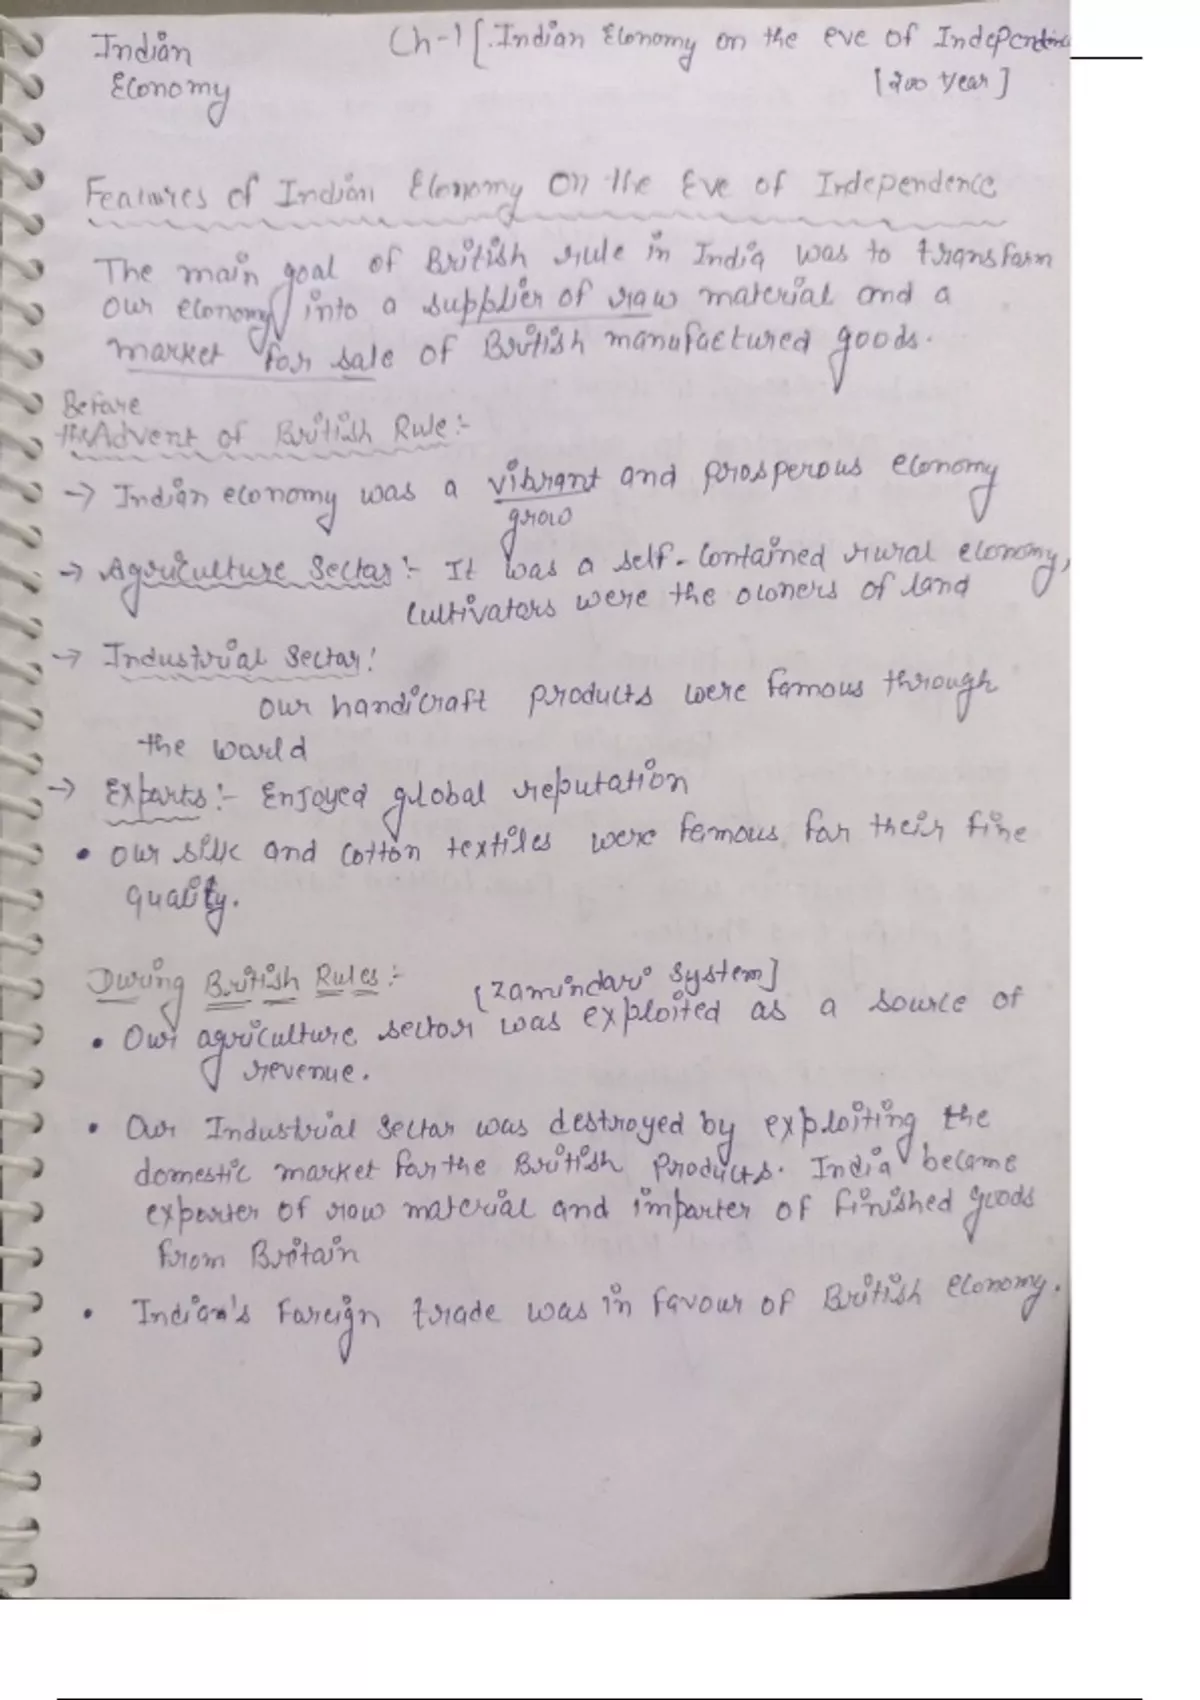 Indian
Economy
Ch-1 [.Indian Economy on the eve of Independence
[200 year]
Features of Indian Economy On the Eve of Independence
The main goal of British rule in India was to transform
our economy into a supplier of raw material and a
market for sale of British manufactured goods.
Before
the Advent of British Rule:-
→ Indian economy was a vibrant and prosperous economy
grow
→ Agriculture Sector:- It was a self-contained rural economy,
cultivators were the owners of land
→ Industrial Sector:
our handicraft products were famous through
the world
→ Exports:- Enjoyed global reputation
• our silk and cotton textiles were femous for their fine
quality.
During British Rules:-
[Zamindari system]
• Our agriculture sector was exploited as a source of
revenue.
• Our Industrial Sector was destroyed by exploiting the
domestic market for the British Products. India became
exporter of row material and importer of finished goods
from Britain
• Indian's Foreign trade was in favour of British economy.